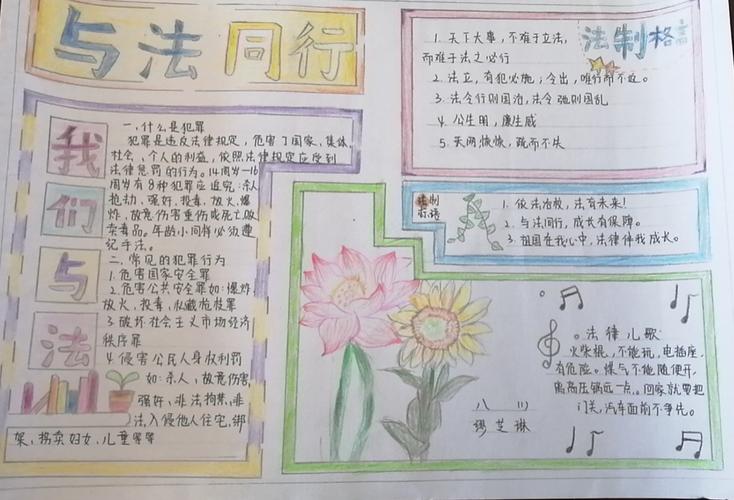 与法同行
我们与法
一、什么是犯罪
犯罪是违反法律规定，危害了国家、集体
社会、个人的利益，依照法律规定应受到
法律惩罚的行为。14周岁—16
周岁有8种犯罪应追究：杀人
抢劫、强奸、投毒、放火、爆
炸、故意伤害重伤或死亡、贩
卖毒品。年龄小同样必须遵
记守法。
二、常见的犯罪行为
1. 危害国家安全罪
2. 危害公共安全罪如：爆炸
放火，投毒，私藏枪枝罪
3. 破坏社会主义市场经济
秩序罪
4. 侵害公民人身权利罚
如：杀人，故意伤害，
强奸、非法拘禁、非
法入侵他人住宅、绑
架、拐卖妇女、儿童等等
法制格言
1. 天下大事，不难于立法，
而难于法之必行
2. 法立，有犯必施；令出，唯行而不返。
3. 法令行则国治，法令弛则国乱
4. 公生明，廉生威
5. 天网恢恢，疏而不失
法制
1. 依法治校，法有未来！
2. 与法同行，成长有保障。
3. 祖国在我心中，法律伴我成长。
法律儿歌
火柴棍，不能玩，电插座，
有危险。煤气不能随便开，
离高压锅远一点。回家就要把
门关，汽车面前不争先。
八（1）
缪芝琳